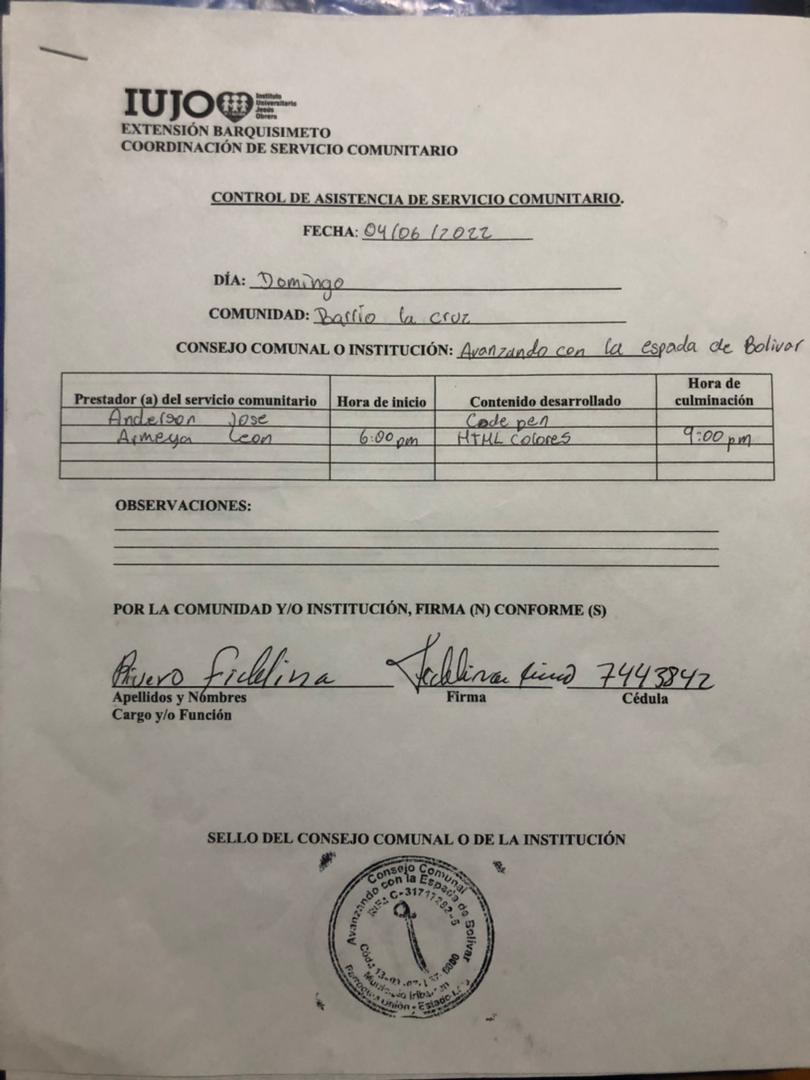 IUJO Instituto
Universitario
Jesús
Obrero
EXTENSIÓN BARQUISIMETO
COORDINACIÓN DE SERVICIO COMUNITARIO
CONTROL DE ASISTENCIA DE SERVICIO COMUNITARIO.
FECHA: 04/06/2022
DÍA: Domingo
COMUNIDAD: Barrio la cruz
CONSEJO COMUNAL O INSTITUCIÓN: Avanzando con la espada de Bolivar
Prestador (a) del servicio comunitario Hora de inicio Contenido desarrollado Hora de culminación
Anderson Jose Code pen
Armeya Leon 6:00 pm HTML Colores 9:00 pm
OBSERVACIONES:
POR LA COMUNIDAD Y/O INSTITUCIÓN, FIRMA (N) CONFORME (S)
Rivero Fidelina 7443842
Apellidos y Nombres Firma Cédula
Cargo y/o Función
SELLO DEL CONSEJO COMUNAL O DE LA INSTITUCIÓN
Consejo Comunal
Avanzando con la Espada de Bolivar
RIF: C-31717282-5
Municipio Iribarren
Parroquia Unión - Estado